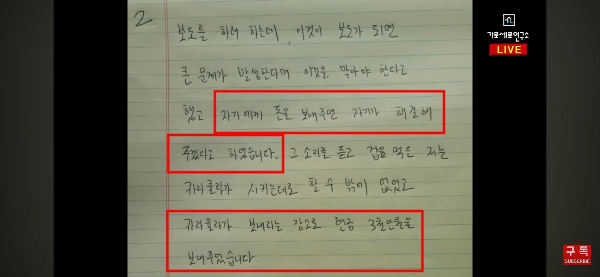 2
보도를 하려 하는데, 이것이 보도가 되면
큰 문제가 발생한다며 이것을 막아야 한다고
했고 자기에게 돈을 보내주면 자기가 해결해
주겠다고 하였습니다. 그 소리를 듣고 겁을 먹은 저는
카라큘라가 시키는데로 할 수 밖에 없었고
카라큘라가 보내라는 장소로 현금 3천만원을
보내주었습니다.
가로세로연구소
LIVE
구독
SUBSCRIBE